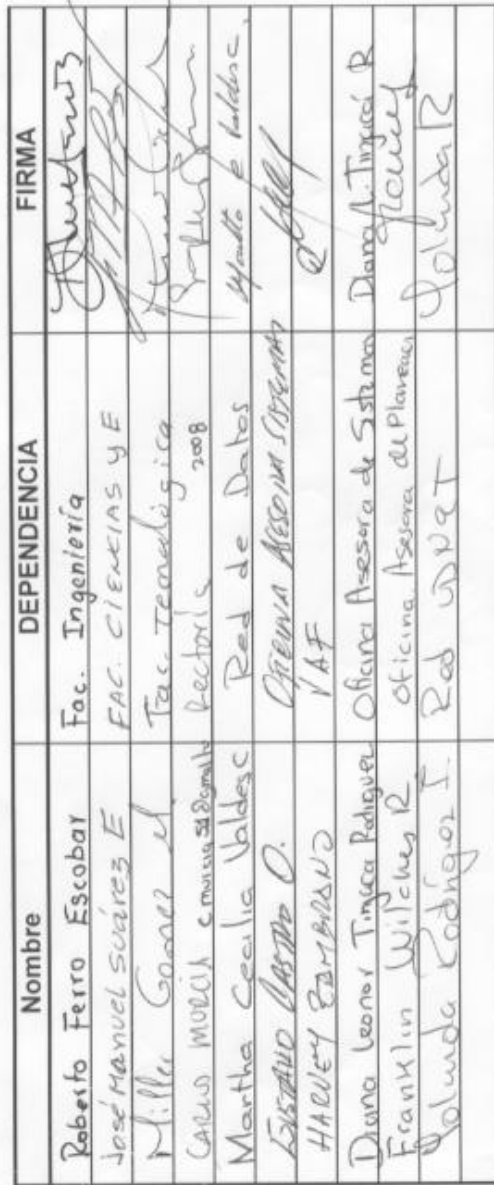 Nombre DEPENDENCIA FIRMA
Roberto Ferro Escobar Fac. Ingeniería
José Manuel Suárez E FAC. CIENCIAS y E
Miller Gomez Fac. Tecnológica
CARLOS MURCIA Rectoría 2008
Martha Cecilia Valdesc Red de Datos Martha C Valdesc.
CASTRO O. OFICINA ASESORA SISTEMAS
HARVEY ZAMBRANO VAF
Diana Leonor Tinjacá Rodriguez Oficina Asesora de Sistemas Diana L. Tinjacá R
Franklin Wilches R Oficina Asesora de Planeac.
Yolanda Rodríguez I. Red UDNET Yolanda R